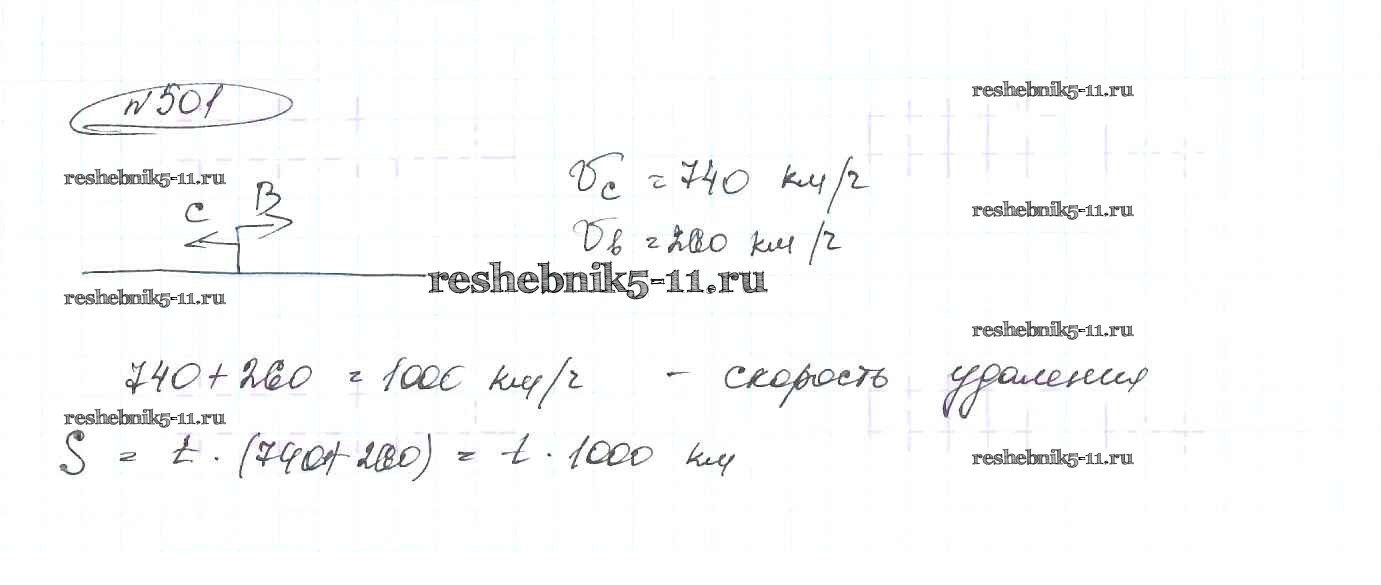 № 501
reshebnik5-11.ru
reshebnik5-11.ru
С В
υс = 740 км/г
υв = 260 км/г
reshebnik5-11.ru
reshebnik5-11.ru
reshebnik5-11.ru
reshebnik5-11.ru
740 + 260 = 1000 км/г - скорость удаления
reshebnik5-11.ru
S = t · (740 + 260) = t · 1000 км
reshebnik5-11.ru